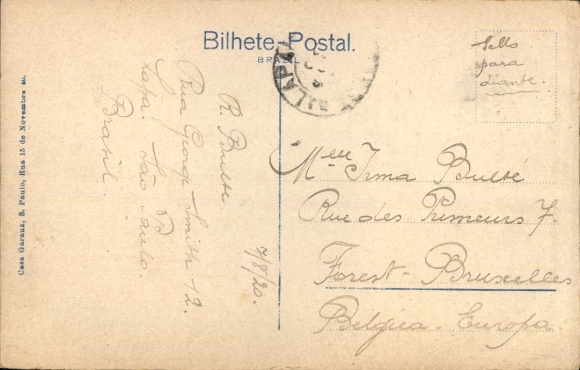 Bilhete-Postal.
BRASIL
Sello
para
diante.
LAPA
Casa Garaux, S. Paulo, Rua 15 de Novembro 40.
R. Bulté
Rua George Smith 12.
Lapa. São Paulo.
Brasil.
7/8/20.
Melle Irma Bulté
Rue des Primeurs 7.
Forest-Bruxelles
Belgica. Europa.